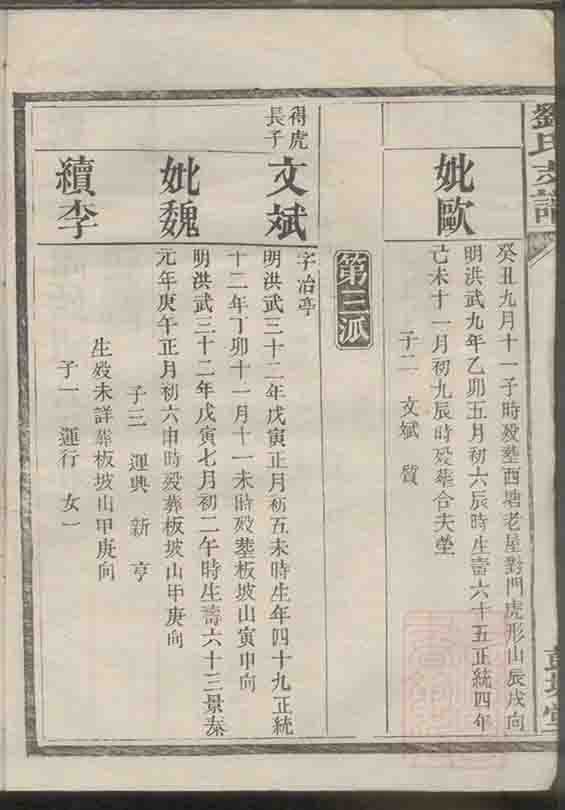 劉氏支譜
癸丑九月十一子時殁塟西塘老屋對門虎形山辰戌向
妣歐
明洪武九年乙卯五月初六辰時生壽六十五正統四年
己未十一月初九辰時殁塟合夫塋
子二 文斌 質
第三派
得虎
長子
文斌
字冶亭
明洪武三十二年戊寅正月初五未時生年四十九正統
十二年丁卯十一月十一未時殁塟板坡山寅申向
妣魏
明洪武三十二年戊寅七月初二午時生壽六十三景泰
元年庚午正月初六申時殁葬板坡山甲庚向
子三 運典 新 亨
續李
生殁未詳葬板坡山甲庚向
子一 運行 女一